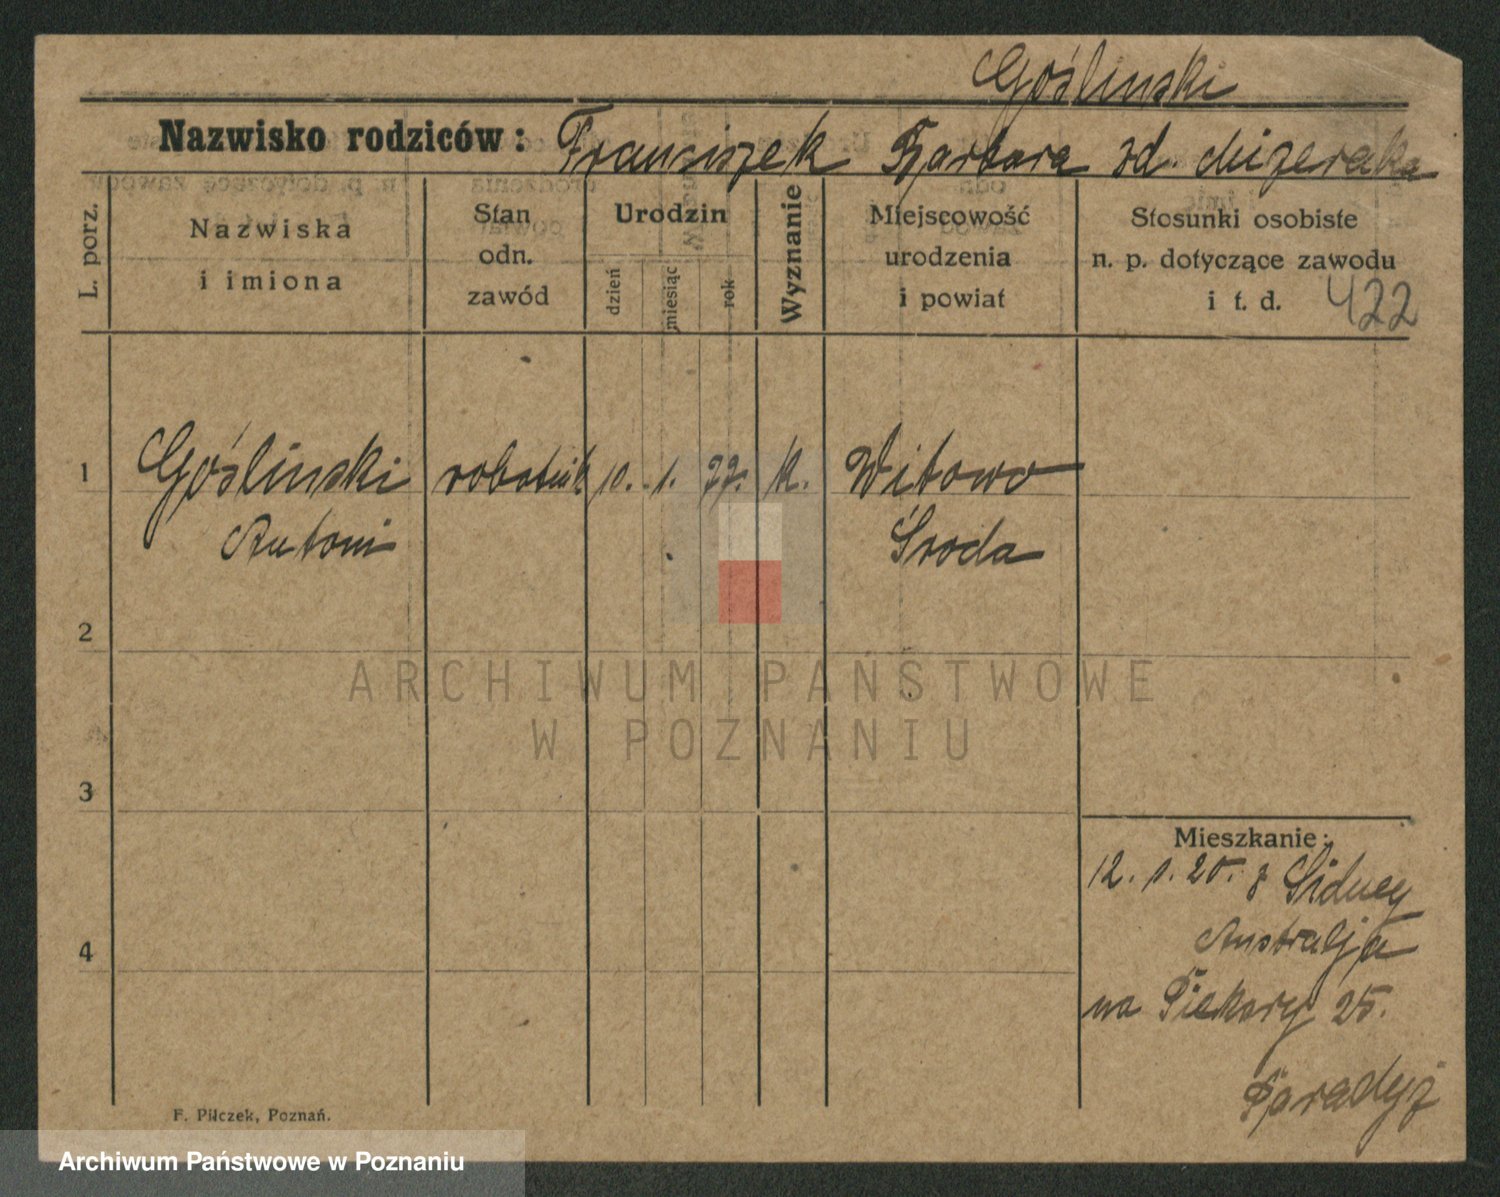 Gośliński
Nazwisko rodziców: Franciszek Barbara zd. Mizerska
L. porz.
Nazwiska
i imiona
Stan
odn.
zawód
Urodzin
dzień
miesiąc
rok
Wyznanie
Miejscowość
urodzenia
i powiat
Stosunki osobiste
n. p. dotyczące zawodu
i t. d. 422
1 Gośliński robotnik 10. 1. 77. k. Witowo
Antoni Środa
2
ARCHIWUM PAŃSTWOWE
W POZNANIU
3
Mieszkanie:
12. 1. 20. z Sidney
Australja
4
na Piekary 25.
F. Pilczek, Poznań.
Archiwum Państwowe w Poznaniu